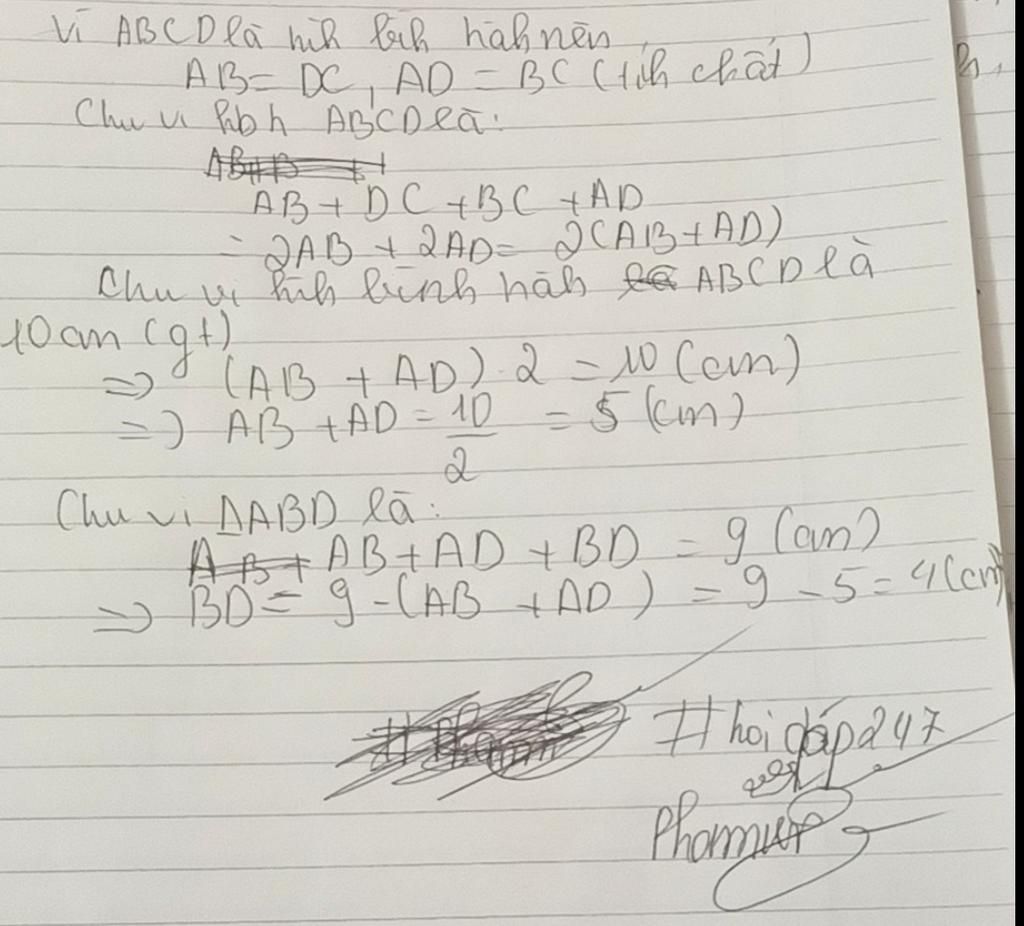 Vì ABCD là hìh bìh hàh nên
AB = DC, AD = BC (tíh chất)
Chu vi hbh ABCD là:
AB + DC + BC + AD
= 2AB + 2AD = 2(AB + AD)
Chu vi hìh bình hàh ABCD là
10cm (gt)
=> (AB + AD) . 2 = 10 (cm)
=> AB + AD = 10/2 = 5 (cm)
Chu vi ΔABD là:
AB + AD + BD = 9 (cm)
=> BD = 9 - (AB + AD) = 9 - 5 = 4 (cm)
#hoidáp247